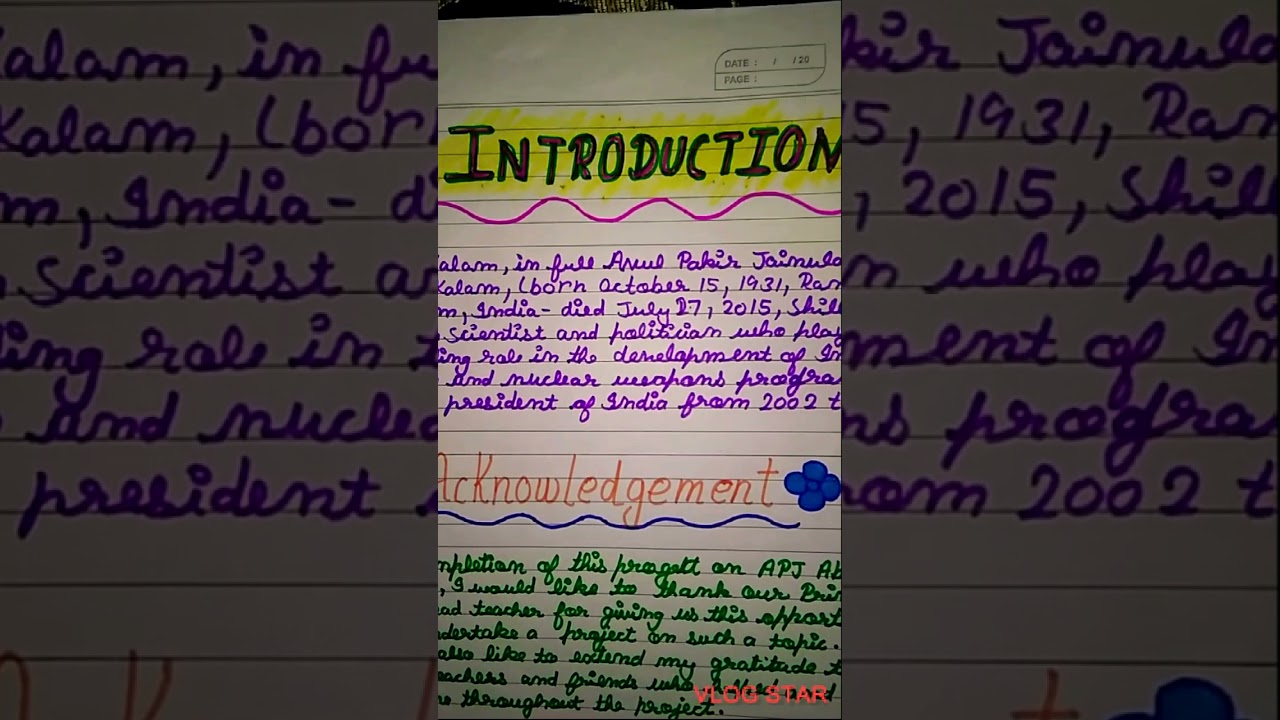 DATE : / / 20
PAGE :
INTRODUCTION
alam, in full Avul Pakir Jainula
Kalam, (born October 15, 1931, Ram
m, India - died July 27, 2015, Shill
Scientist and politician who play
ing role in the development of In
and nuclear weapons progra
president of India from 2002 t
Acknowledgement
mpletion of this progett on APJ Ab
, I would like to thank our Prin
ad teacher for giving us this opport
dertake a project on such a topic.
also like to extend my gratitude t
eachers and friends who
e throughout the project.
VLOG STAR